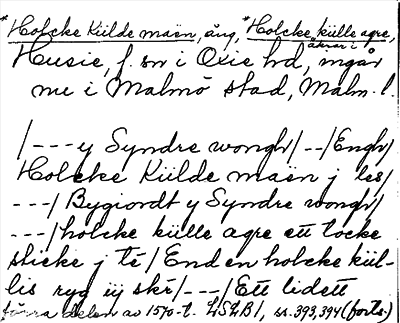 *Holcke Külde maën, äng, *Holcke külle agre,
åkrar i
Husie, f. sn i Oxie hd, ingår
nu i Malmö stad, Malm. l.
/---y Syndre wongh/--/Engh/
Holcke Külde maën j les/
---/Bygiordt y Syndre wongh/
---/holcke külle agre ett tocke
sticke j té/End en holcke kül-
lis ryg iij skr/---/Ett lidett
förra delen av 1570-t. LSLB1, s. 393,394 (forts.)